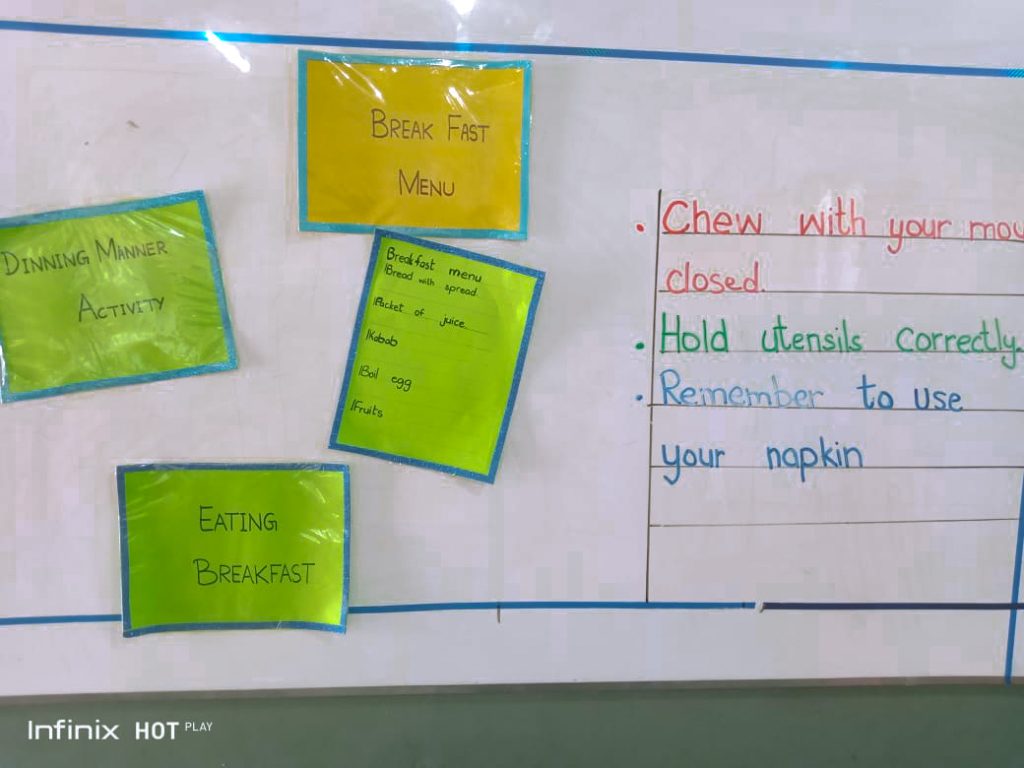 BREAK FAST
MENU
DINNING MANNER
ACTIVITY
Breakfast menu
Bread with spread
Packet of juice
Kabab
Boil egg
Fruits
EATING
BREAKFAST
. Chew with your mou
closed.
. Hold utensils correctly.
. Remember to use
your napkin
Infinix HOT PLAY